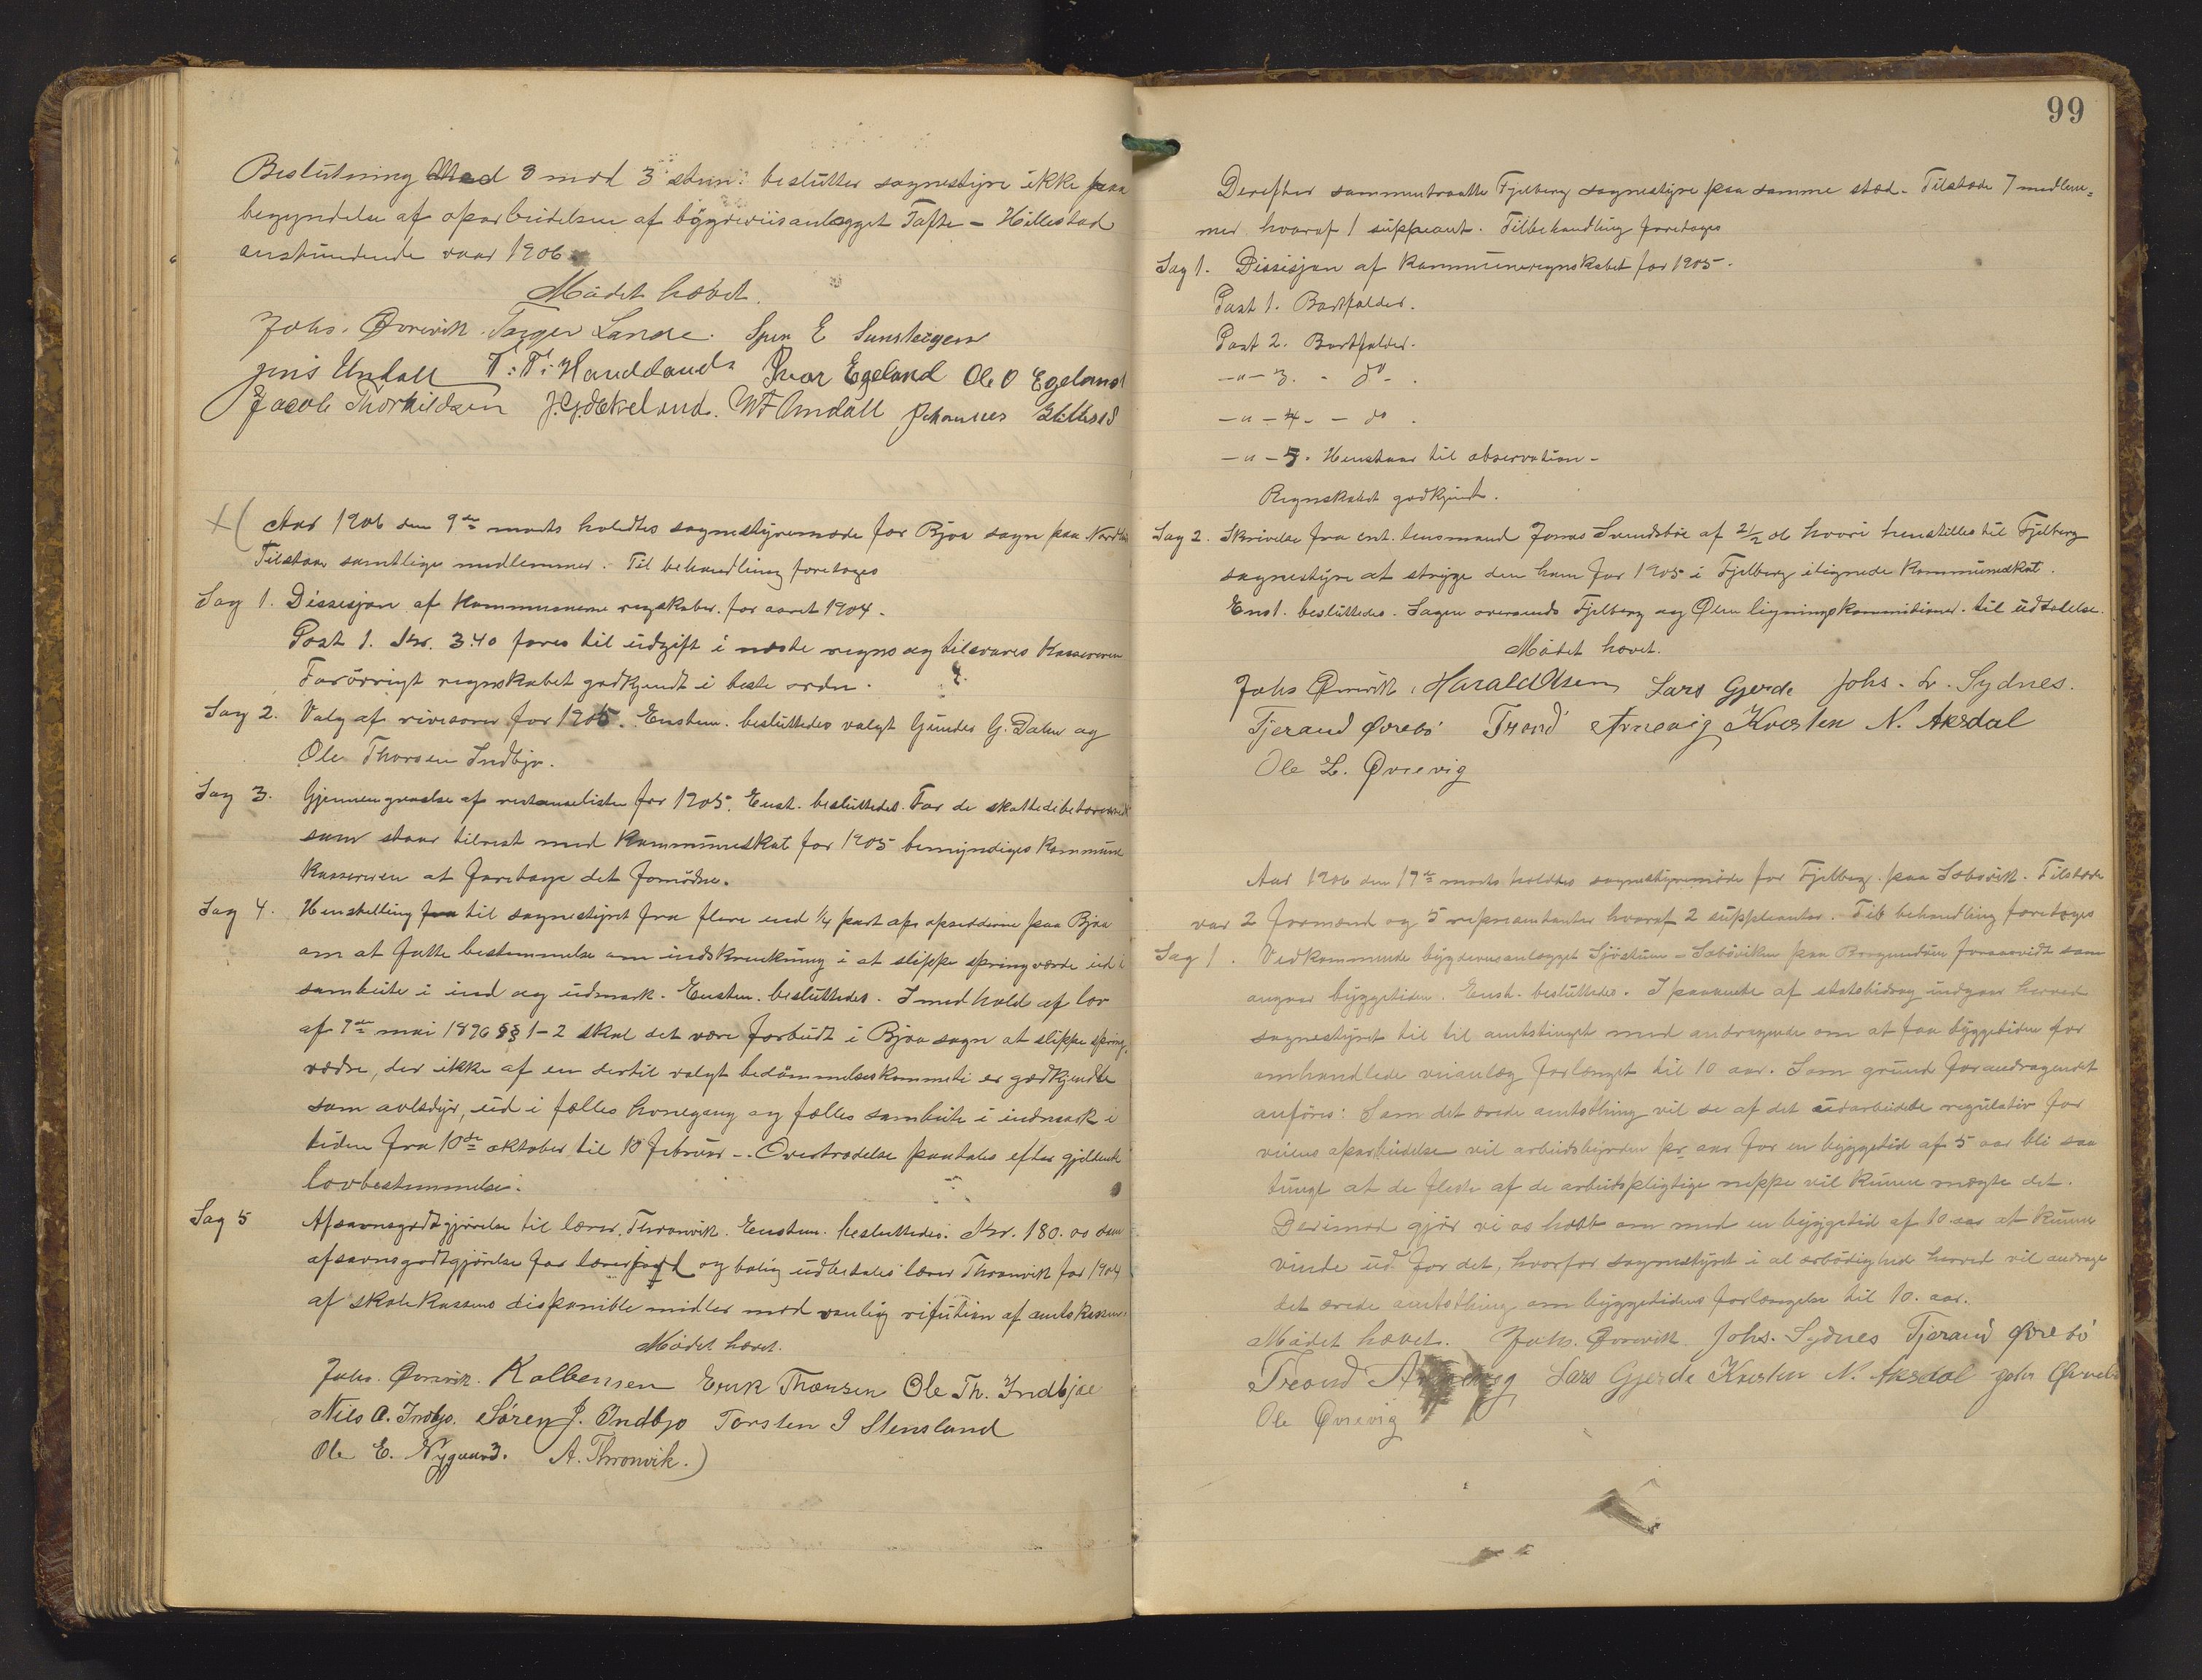 Beslutning Med 8 mod 3 stem: beslutter sognestyre ikke paa
begyndelse af oparbeidelsen af bygdeveisanlægget Tafte - Hillestad
anstundende vaar 1906
Mödet hævet.
Johs. Øvrevik. Torger Lande. E
Jens Undall T. T. Handeland Ivar Egeland Ole O Egeland
Jacob Thorkildsen J. G. Økland. Undall Johannes
Aar 1906 den 9de marts holdtes sognestyremøde for Bjoa sogn paa
Tilstæde samtlige medlemmer. Til behandling foretoges
Sag 1. Dissisjon af Kommunerne regskaber. for aaret 1904.
Post 1. Kr. 3.40 føres til udgift i næste regns og tilsvares Kassereren
Forövrigt regnskabet godkjendt i beste orden.
Sag 2. Valg af rivisorer for 1905. Enstem. besluttedes valgt Gunder G. Dalen og
Ole Thorsen Indbjo.
Sag 3. Gjennemgaaelse af restanselisten for 1905. Enst. besluttedes. For de
som staar tilrest med Kommuneskat for 1905 bemyndiges Kommune
Kassereren at foretage det fornödne.
Sag 4. Henstilling fra til sognestyret fra flere end 1/4 part af opsidderne paa Bjoa
om at fatte bestemmelse om indskrænkning i at slippe springvædre ud i
sambeite i ind og udmark. Enstem. besluttedes. I medhold af lov
af 9de mai 1896 §§ 1-2 skal det være forbudt i Bjoa sogn at slippe spring.
vædre, der ikke af en dertil valgt bedömmelseskommete er godkjendte
som avlsdyr, ud i fælles havnegang og fælles sambeite i indmark i
tiden fra 10de oktober til 10 februar -. Overtrædelse paatales efter gjeldende
lovbestemmelse.
Sag 5 Afsavnsgodtgjørelse til lærer Thronvik. Enstem. besluttedes. Kr. 180.00 som
afsavnsgodtgjörelse for lærerjord og bolig udbetales lærer Thronvik for 1904
af skolekassens disponible midler mod vanlig rifution af amtskassen.
Mödet hævet.
Johs. Øvrevik. Kolbensen Erik Thorsen Ole Th. Indbjoe
Nils O. Indbjo. Sören J. Indbjo Torsten I Stensland
Ole E. Nygaard. A. Thronvik.)
99
Derefter sammentraatte Fjelberg sognestyre paa samme sted - Tilstæde 7 medlem=
mer hvoraf 1 suppeant. Tilbehandling foretoges
Sag 1. Dissisjon af Kommuneregnskabet for 1905.
Post 1. Bortfalder.
Post 2. Bortfalder.
-"- 3. - do -.
-"- 4. - do.
-"- 5. Henstaar til observation -
Regnskabet godkjendt.
Sag 2. Skrivelse fra ent. lensmand Jonas Svendsbøe af 2/2 06 hvori henstilles til Fjelberg
sognestyre at stryge den ham for 1905 i Fjelberg ilignede Kommuneskat.
Enst. besluttedes. Sagen oversendes Fjelberg og Ølen ligningskommisioner. til udtalelse.
Mödet hævet.
Johs Øvrevik. Harald Lars Gjerde Johs. L. Sydnes.
Tjerand Øvrebö Trond Arnevig Kristen N. Aksdal
Ole L. Øvrevig
Aar 1906 den 17de marts holdtes sognestyremöde for Fjelberg paa Sæbövik. Tilstæde
var 2 formænd og 5 repræsentanter hvoraf 2 suppleanter. Til behandling foretoges
Sag 1. Vedkommende bygdeveisanlægget - Sæböviken paa forsaavidt som
angaar byggetiden. Enst. besluttedes. I paavente af statsbidrag indgaar herred
sognestyret til til amtstinget med andragende om at faa byggetiden for
omhandlede veianlæg forlænget til 10 aar. Som grund for andragendet
anföres: Som det ærede amtsthing vil se af det udarbeidede regulativ for
veiens oparbeidelse vil arbeidsbyrden pr aar for en byggetid af 5 aar bli saa
tungt at de fleste af de arbeidspligtige neppe vil kunne magte det.
Derimod gjør vi os haab om med en byggetid af 10 aar at kunne
vinde ud for det, hvorfor sognestyret i al ærbödighed herved vil andrage
det ærede amtsthing om byggetidens forlængelse til 10. aar.
Mödet hævet. Johs. Øvrevik. Johs. Sydnes Tjerand Øvrebö
Treond Lars Gjerde Kristen N. Aksdal
Ole Øvrevig